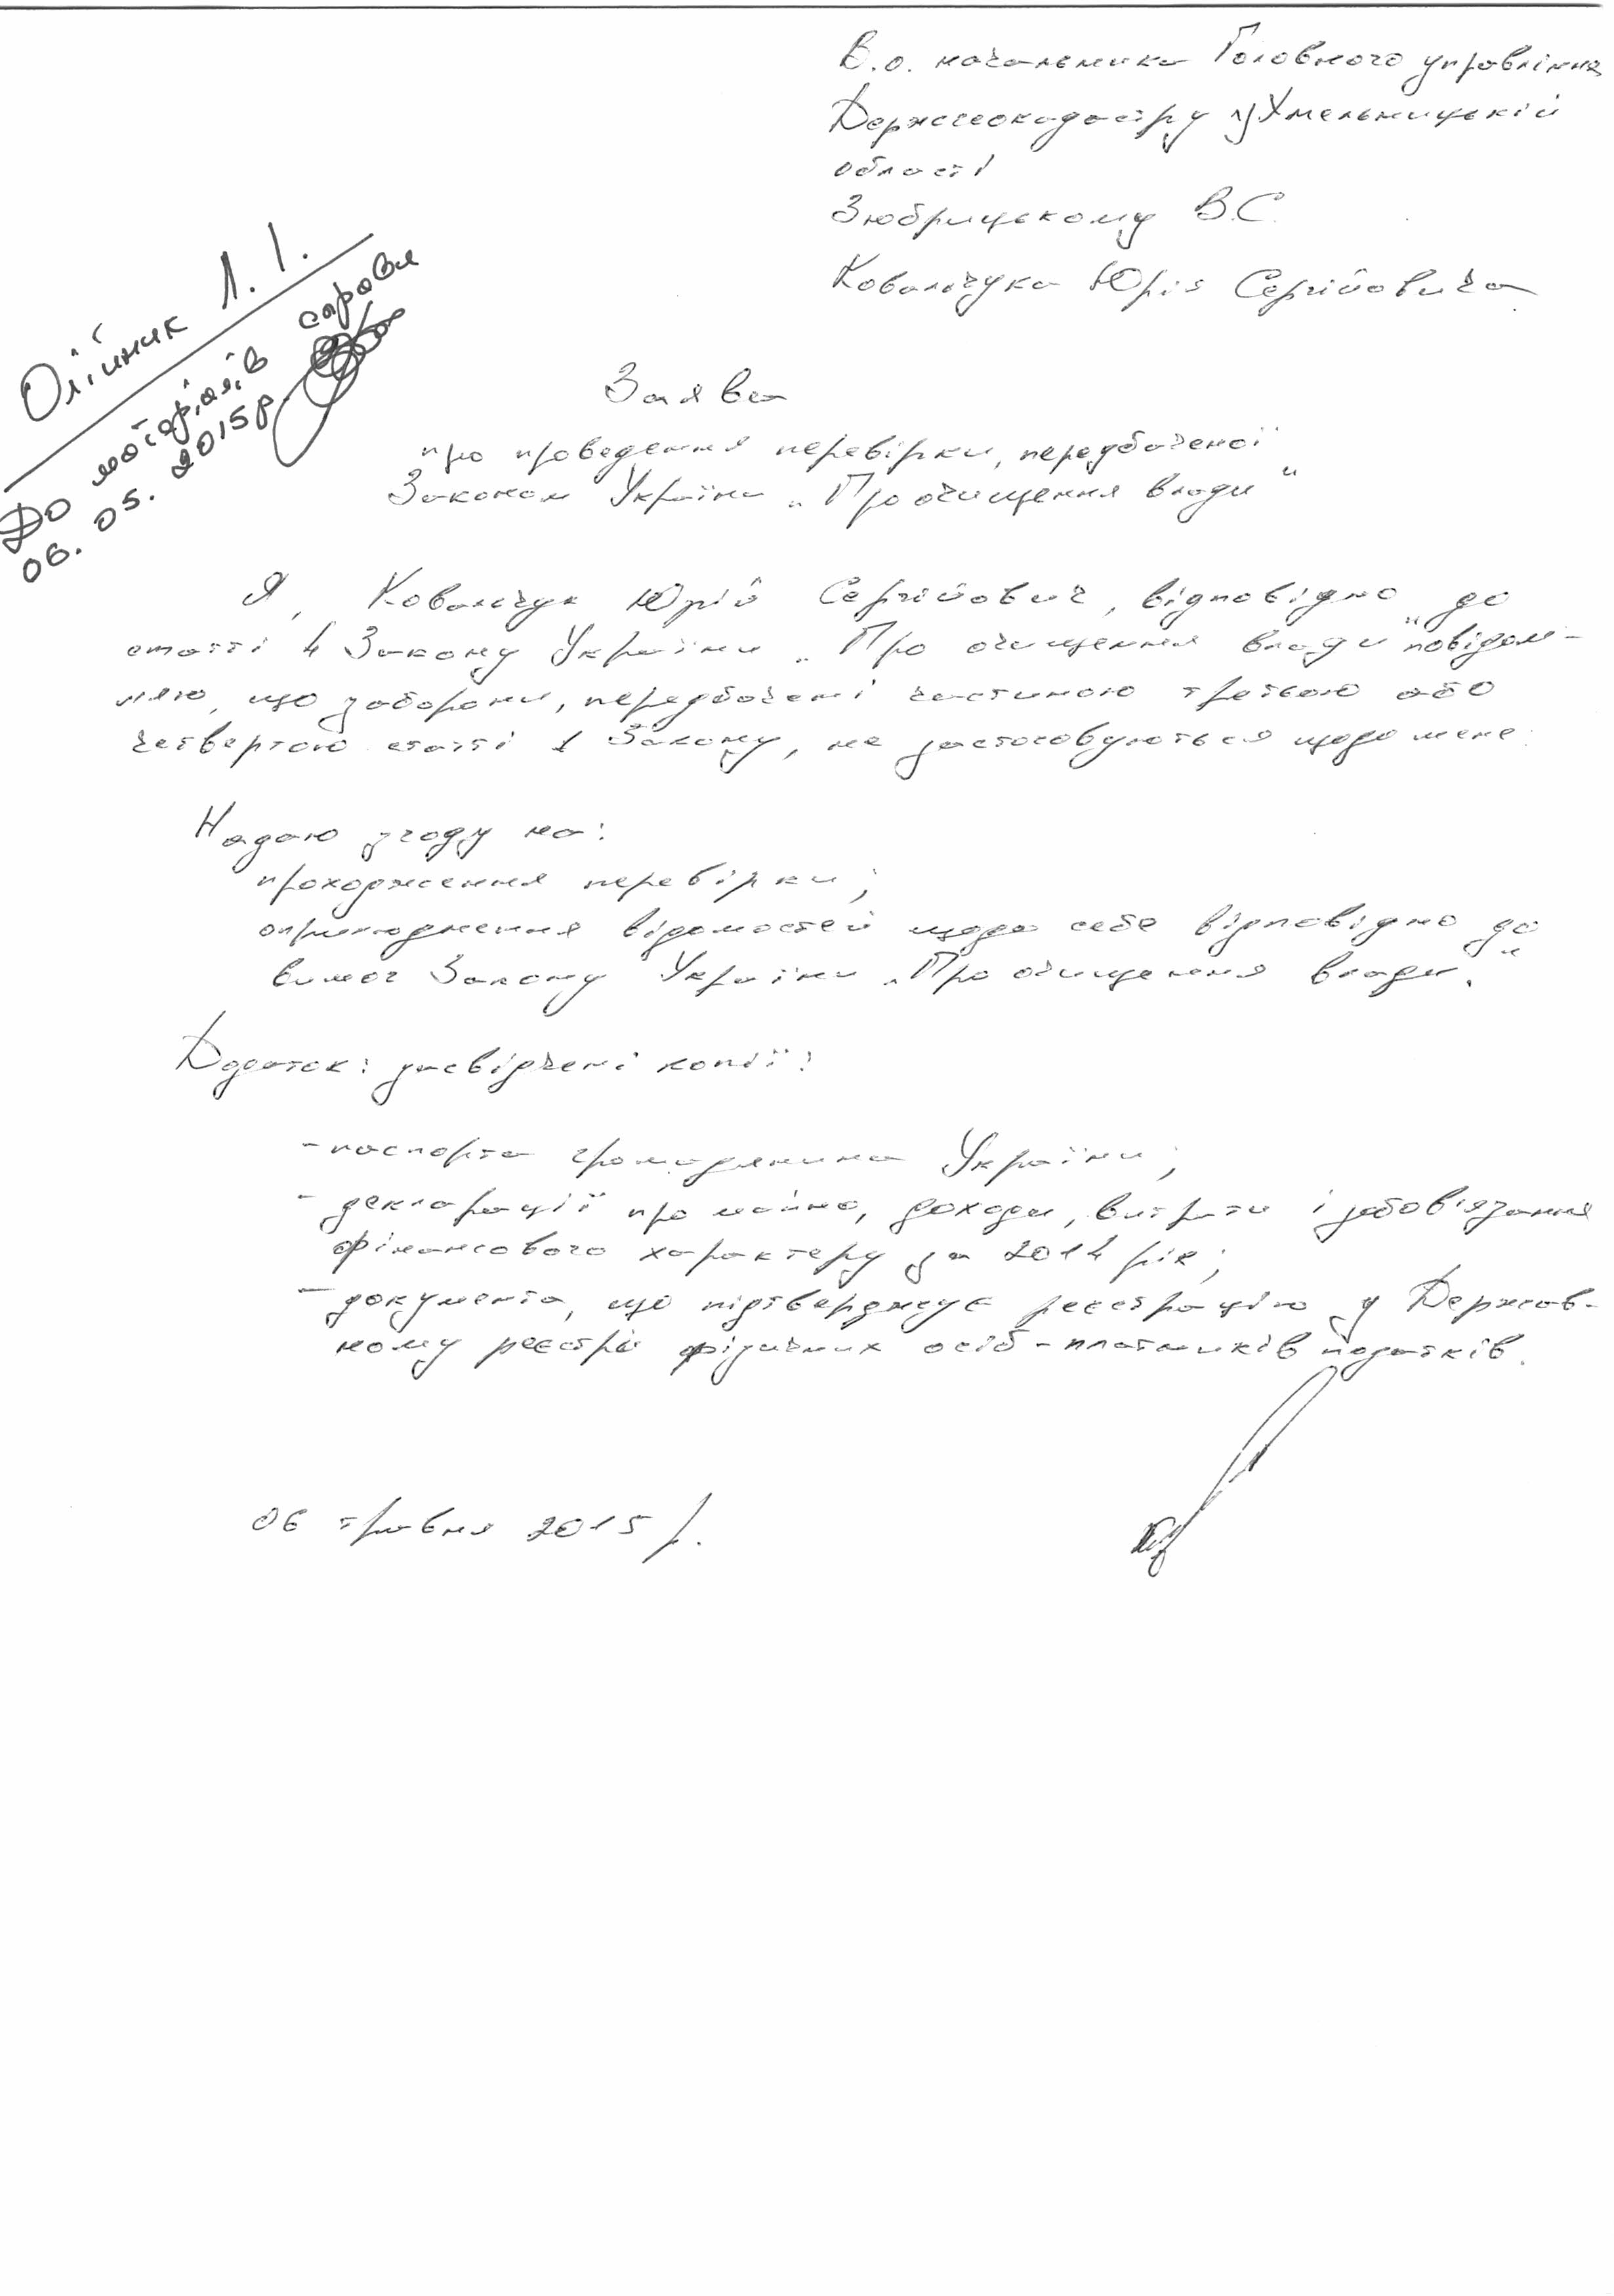 В.о. начальника Головного управління
Держгеокадастру у Хмельницькій
області
Зюбрицькому В.С.
Ковальчука Юрія Сергійовича
Олійник Л. І.
До матеріалів справи
06. 05. 2015р.
Заява
про проведення перевірки, передбаченої
Законом України „Про очищення влади"
Я, Ковальчук Юрій Сергійович, відповідно до
статті 4 Закону України „Про очищення влади" повідом-
ляю, що заборони, передбачені частиною третьою або
четвертою статті 1 Закону, не застосовуються щодо мене.
Надаю згоду на:
проходження перевірки;
оприлюднення відомостей щодо себе відповідно до
вимог Закону України „Про очищення влади".
Додаток: засвідчені копії:
- паспорта громадянина України;
- декларації про майно, доходи, витрати і зобов'язання
фінансового характеру за 2014 рік;
- документа, що підтверджує реєстрацію у Держав-
ному реєстрі фізичних осіб - платників податків.
06 травня 2015 р.